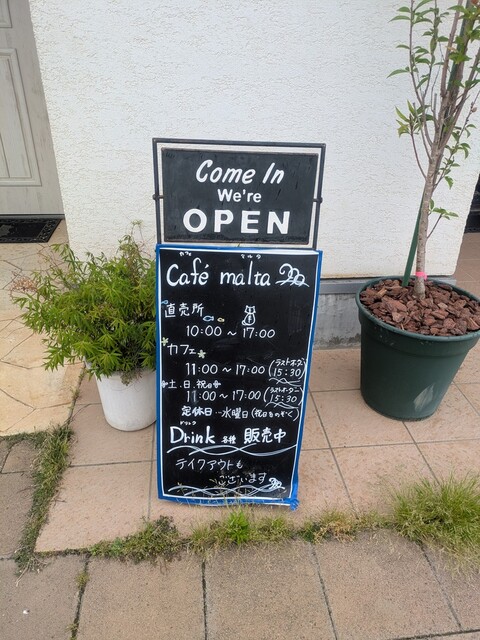 Come In
We're
OPEN
カフェ マルタ
Café malta
直売所
10:00 ~ 17:00
カフェ
11:00 ~ 17:00 (ラストオーダー 15:30)
土.日.祝日
11:00 ~ 17:00 (ラストオーダー 15:30)
定休日…水曜日(祝日をのぞく)
ドリンク
Drink 各種 販売中
テイクアウトも
ございます